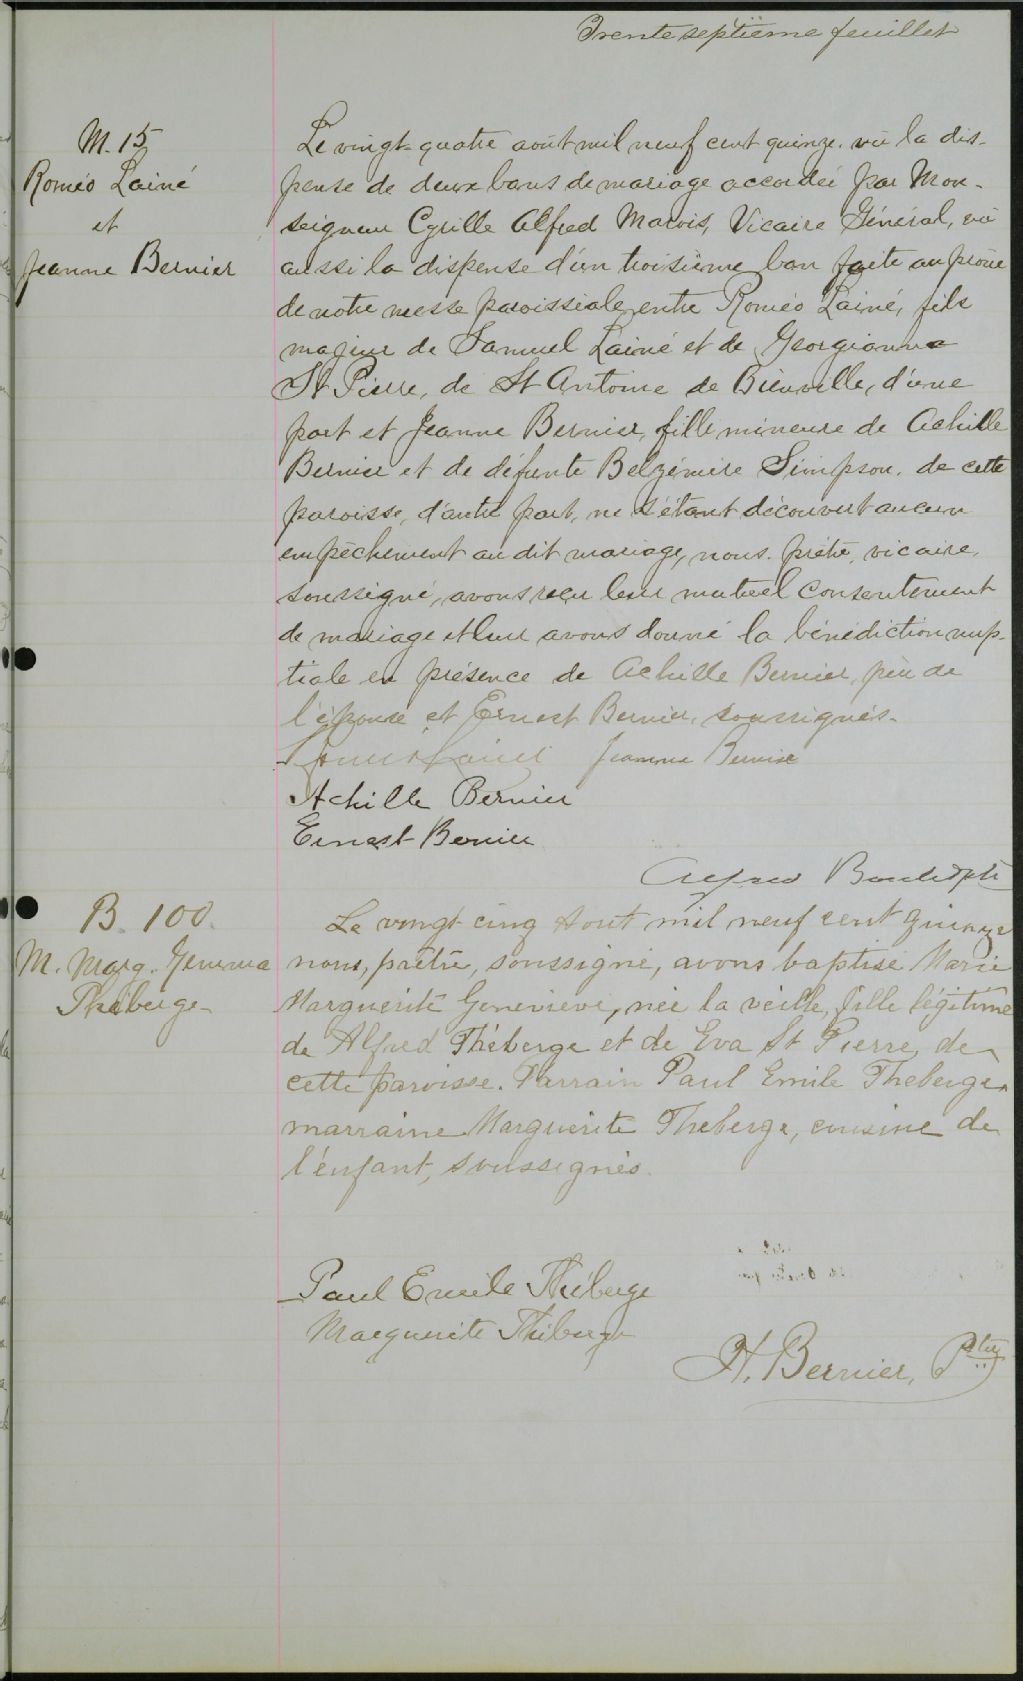 Trente septième feuillet
M. 15
Roméo Lainé
et
Jeanne Bernier
Le vingt-quatre août mil neuf cent quinze, vu la dis-
pense de deux bans de mariage accordée par Mon-
seigneur Cyrille Alfred Marois, Vicaire Général, vu
aussi la dispense d'un troisième ban faite au prône
de notre messe paroissiale entre Roméo Lainé, fils
majeur de Samuel Lainé et de Georgianna
St Pierre, de St Antoine de Bienville, d'une
part et Jeanne Bernier, fille mineure de Achille
Bernier et de défunte Belzémire Simpson, de cette
paroisse, d'autre part, ne s'étant découvert aucun
empêchement au dit mariage, nous, prêtre, vicaire,
soussigné, avons reçu leur mutuel consentement
de mariage et leur avons donné la bénédiction nup-
tiale en présence de Achille Bernier, père de
l'épouse et Ernest Bernier, soussignés.
Lainé Jeanne Bernier
Achille Bernier
Ernest Bernier
Alfred ptre
B. 100.
M. Marg. Gemma
Théberge
Le vingt cinq Aout mil neuf cent quinze
nous, prêtre, soussigné, avons baptisé Marie
Marguerite Geneviève, née la veille, fille légitime
de Alfred Théberge et de Eva St Pierre, de
cette paroisse. Parrain Paul Emile Theberge,
marraine Marguerite Theberge, cousine de
l'enfant, soussignés.
Paul Emile Théberge
Marguerite Théberge
H. Bernier, Ptre